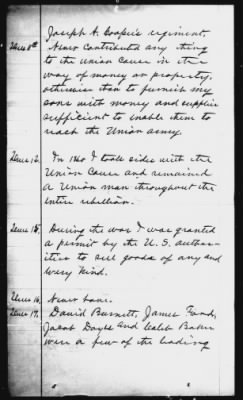 Joseph A. Cooper's regiment.
Ques 8th Never contributed any thing
to the Union Cause in the
way of money or property,
otherwise than to furnish my
sons with money and supplies
sufficient to enable them to
reach the Union army.
Ques 12. In 1860 I took sides with the
Union Cause and remained
a Union man throughout the
entire rebellion.
Ques 15. During the war I was granted
a permit by the U. S. author-
ities to sell goods of any and
every kind.
Ques 16. Never
Ques 17. David Burnett, James
Jacob Doyle and Caleb Baker
were a few of the leading